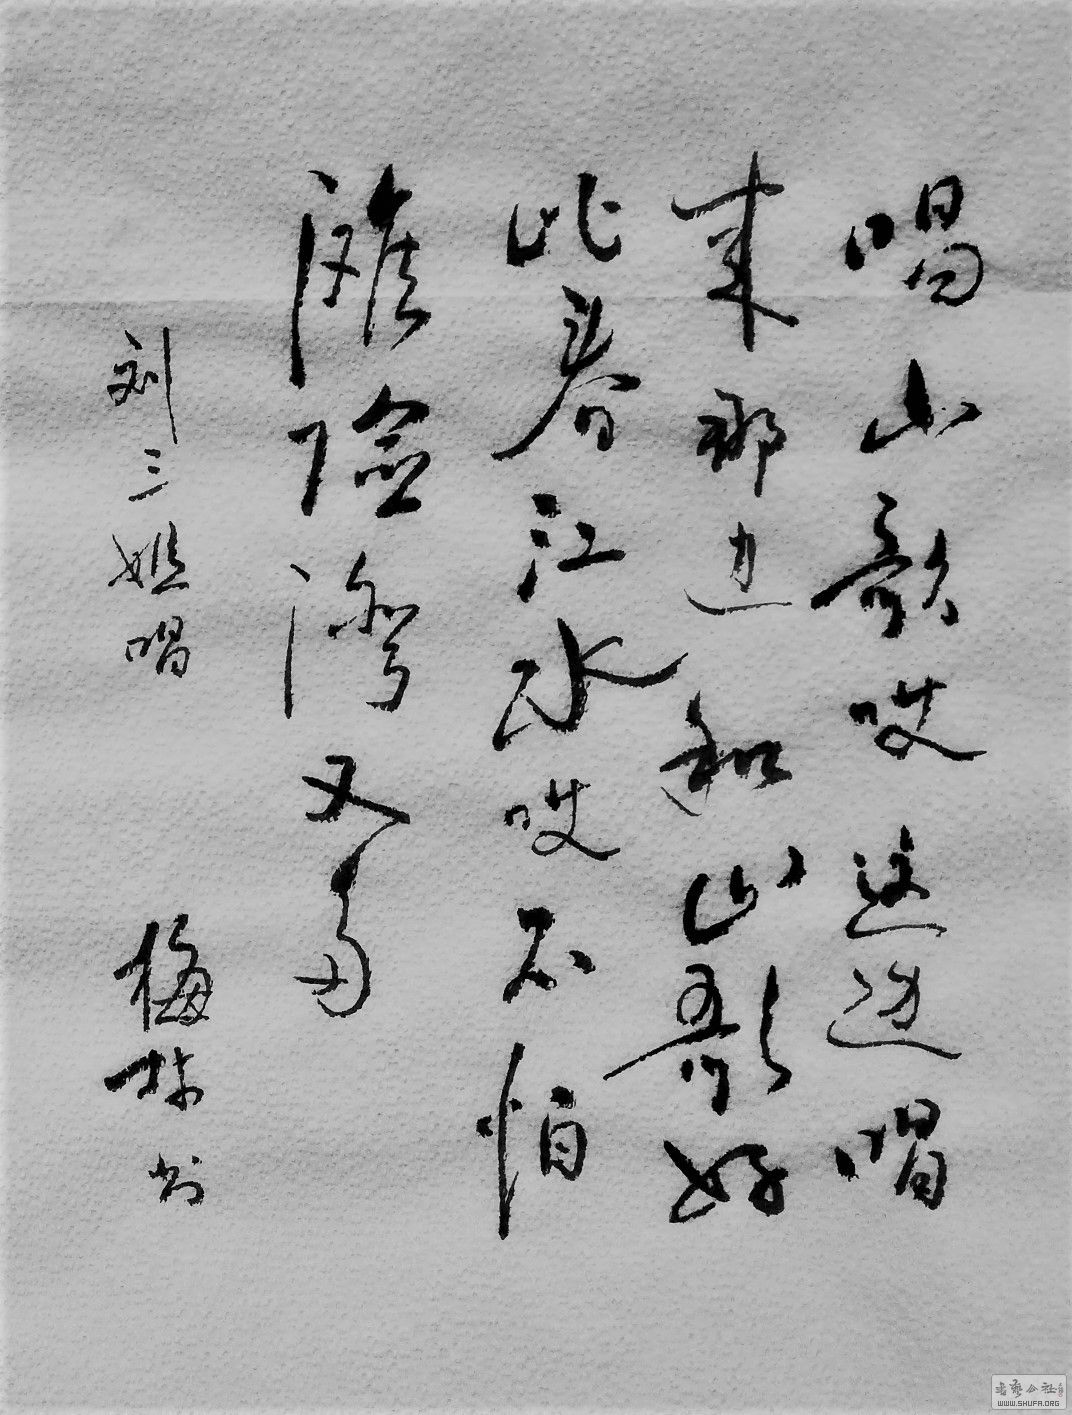 唱山歌哎这边唱
来那边和山歌好
比春江水哎不怕
滩险湾又多
刘三姐唱
梅林书
书艺公社
WWW.SHUFA.ORG